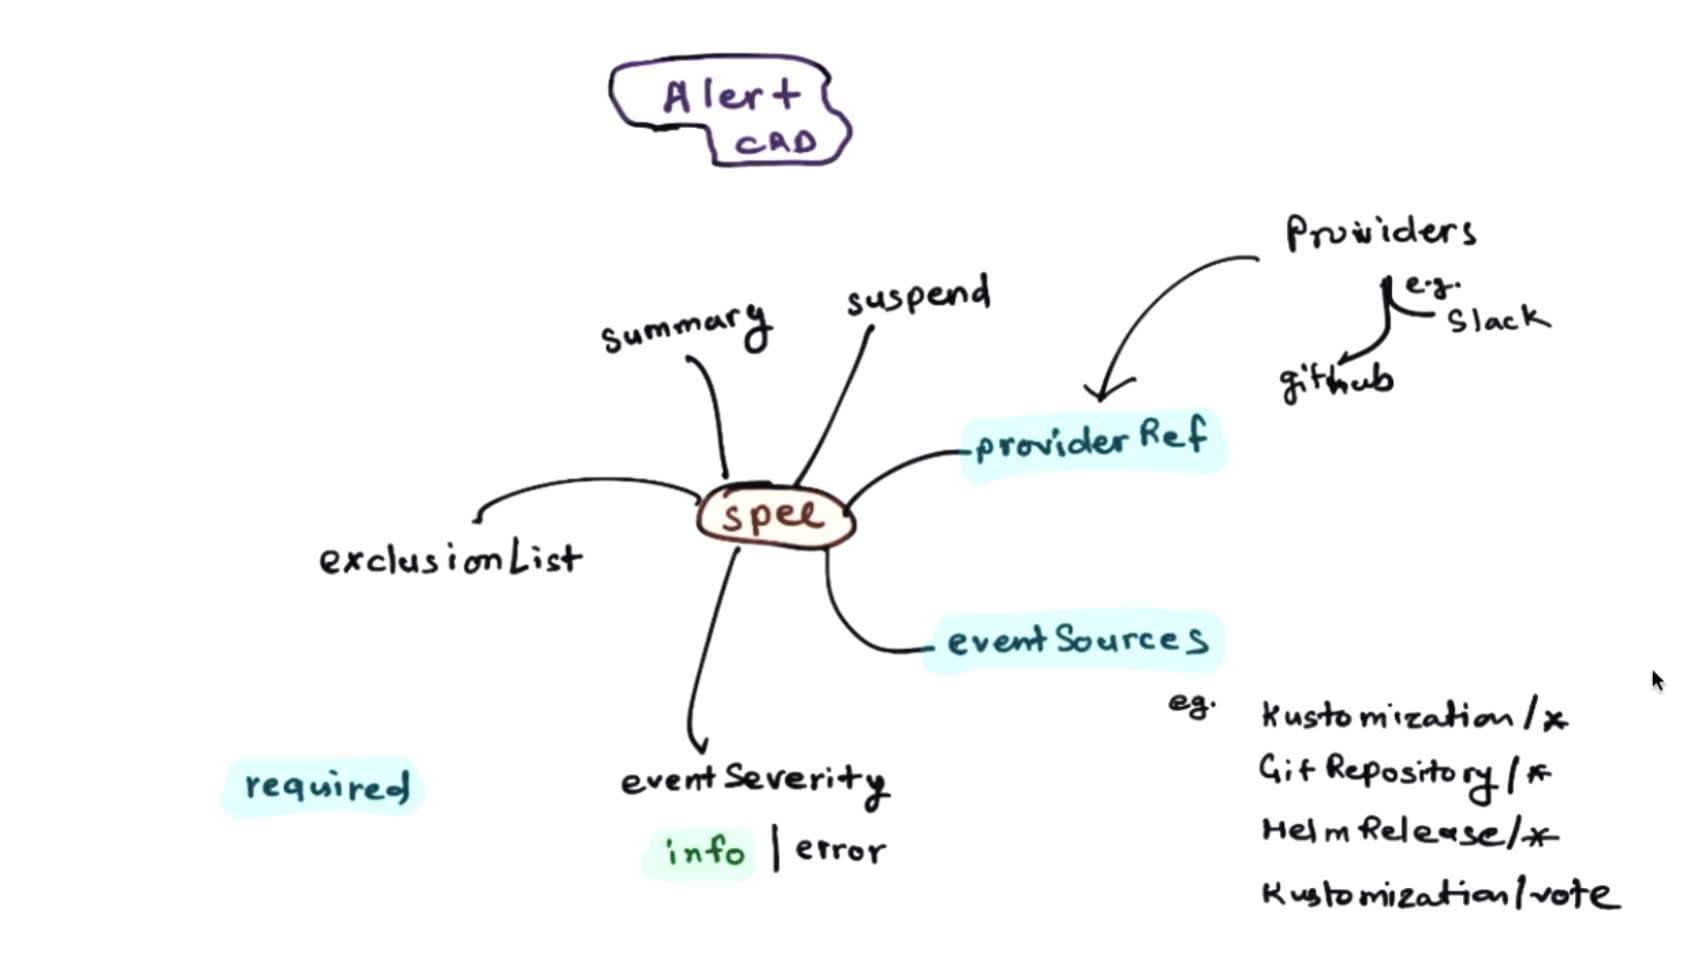 Alert
CRD
Providers
e.g.
Slack
github
summary
suspend
providerRef
spec
exclusionList
eventSources
eg.
Kustomization/*
GitRepository/*
HelmRelease/*
Kustomization/vote
required
eventSeverity
info | error